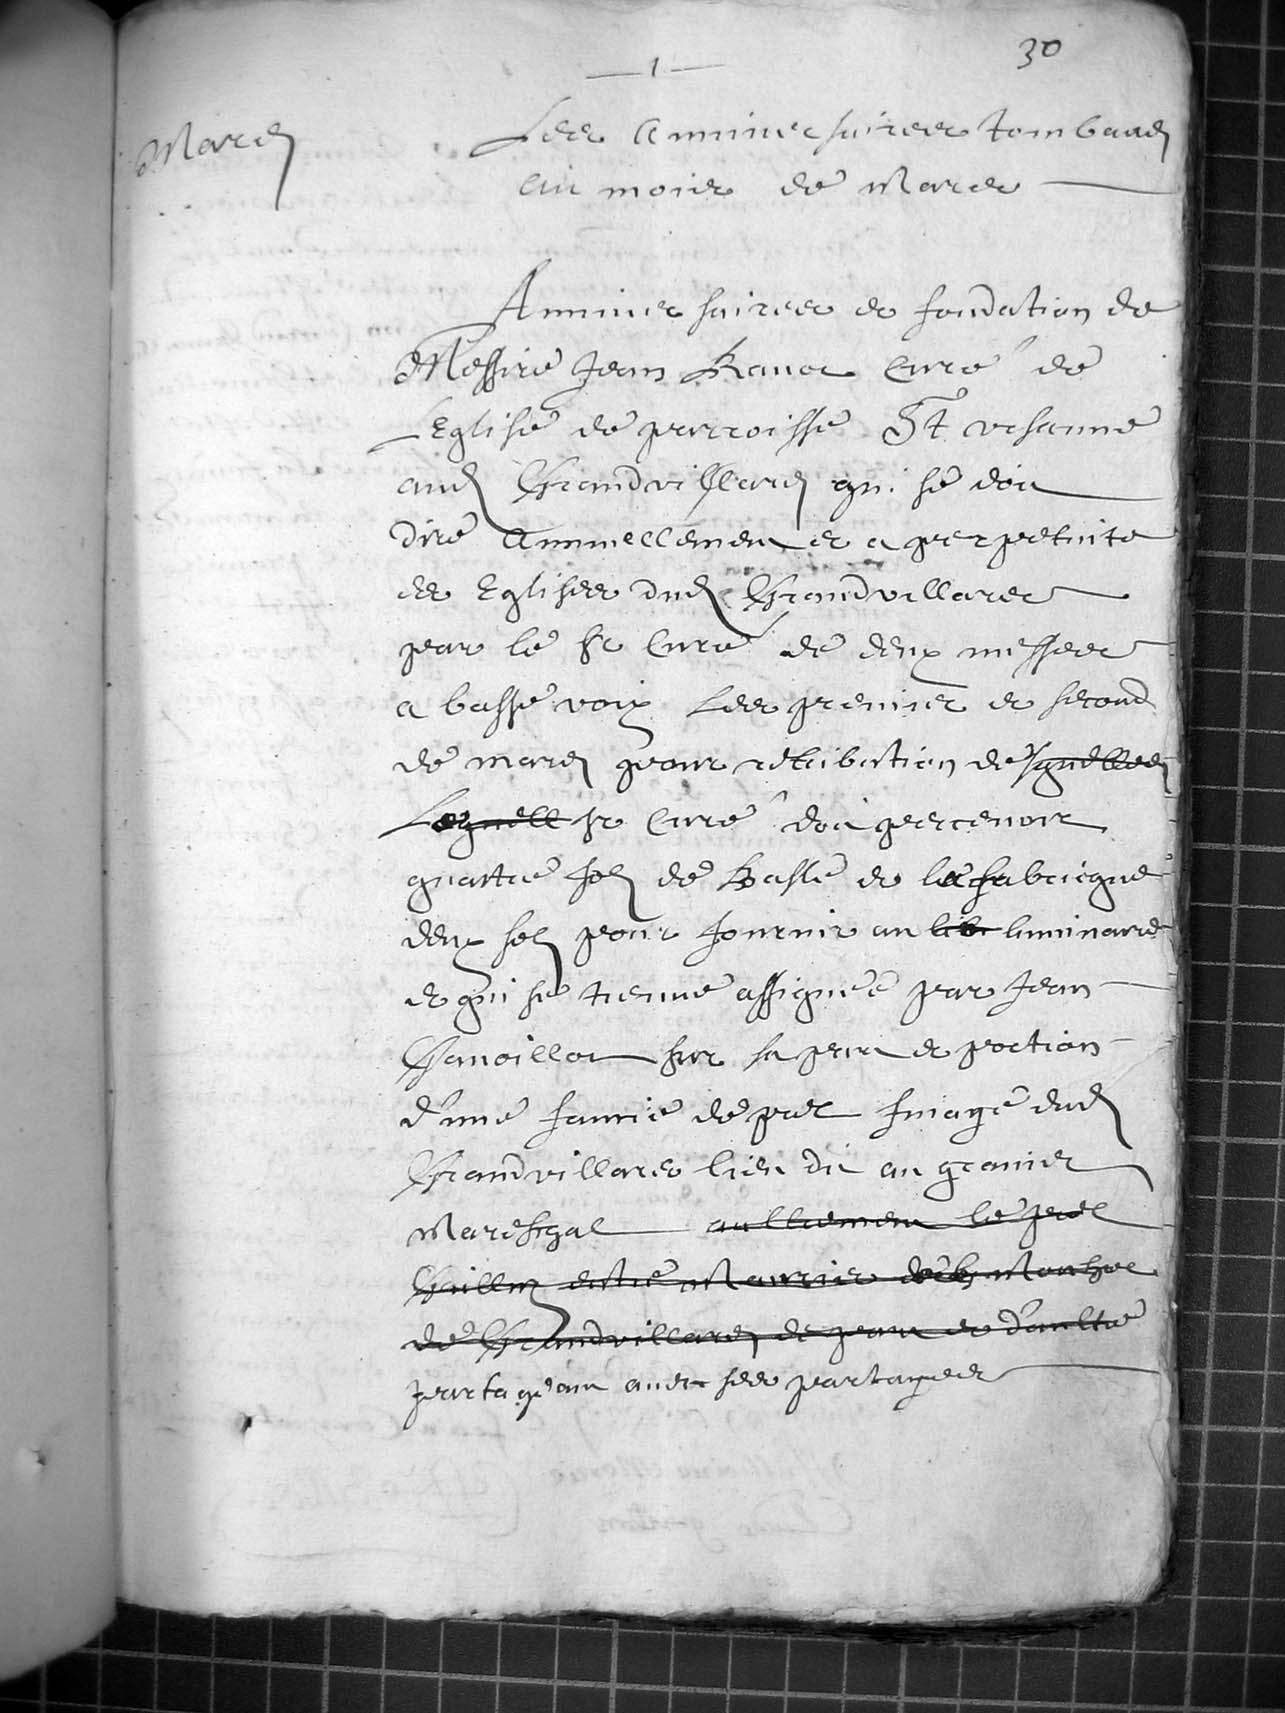 30
— 1 —
Mars
Les Anniversaires tombans
au mois de Mars
Anniversaires et fondation de
Messire Jean Ravat Curé de
l'Eglise de parroisse St vrsanne
aud Grandvillars qui se doit
dire Annuellement et a perpetuite
es Eglises dud Grandvillars
par le Sr Curé de deux messes
a basse voix Les premier et second
de mars pour retribution desquelles
Lequell Sr Curé doit percevoir
quattre sols de Basle et la fabricque
deux sols pour fournir au luminaire
et qui se tienne assignée par Jean
Chavoillat sur sa part et portion
d'une faucie de prel finage dud
Grandvillars lieu dit au granier
Mareschal aultrement le prel
Guillm entre Maurice Monhat
de Grandvillars de part et d'aultre
partageant avec ses partages